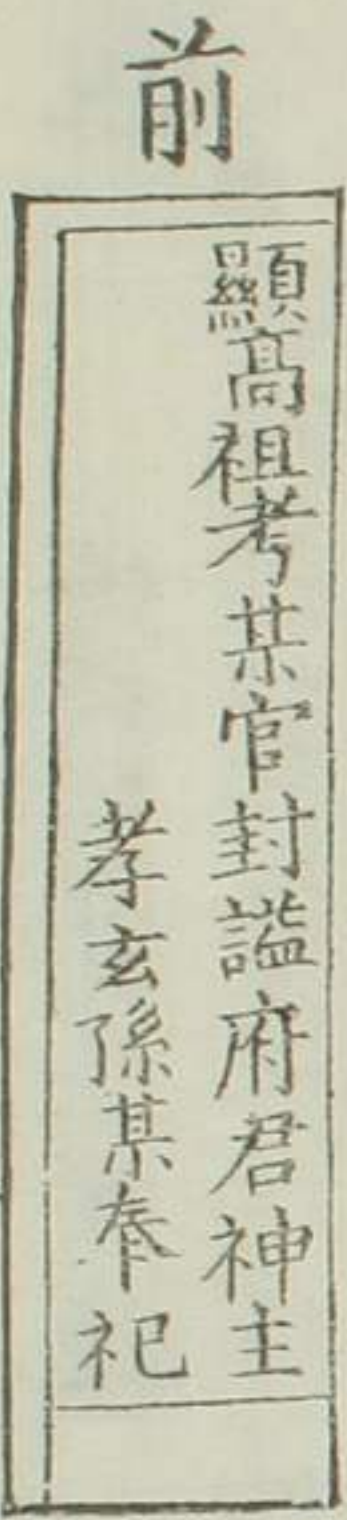 前
顯高祖考某官封謚府君神主
孝玄孫某奉祀